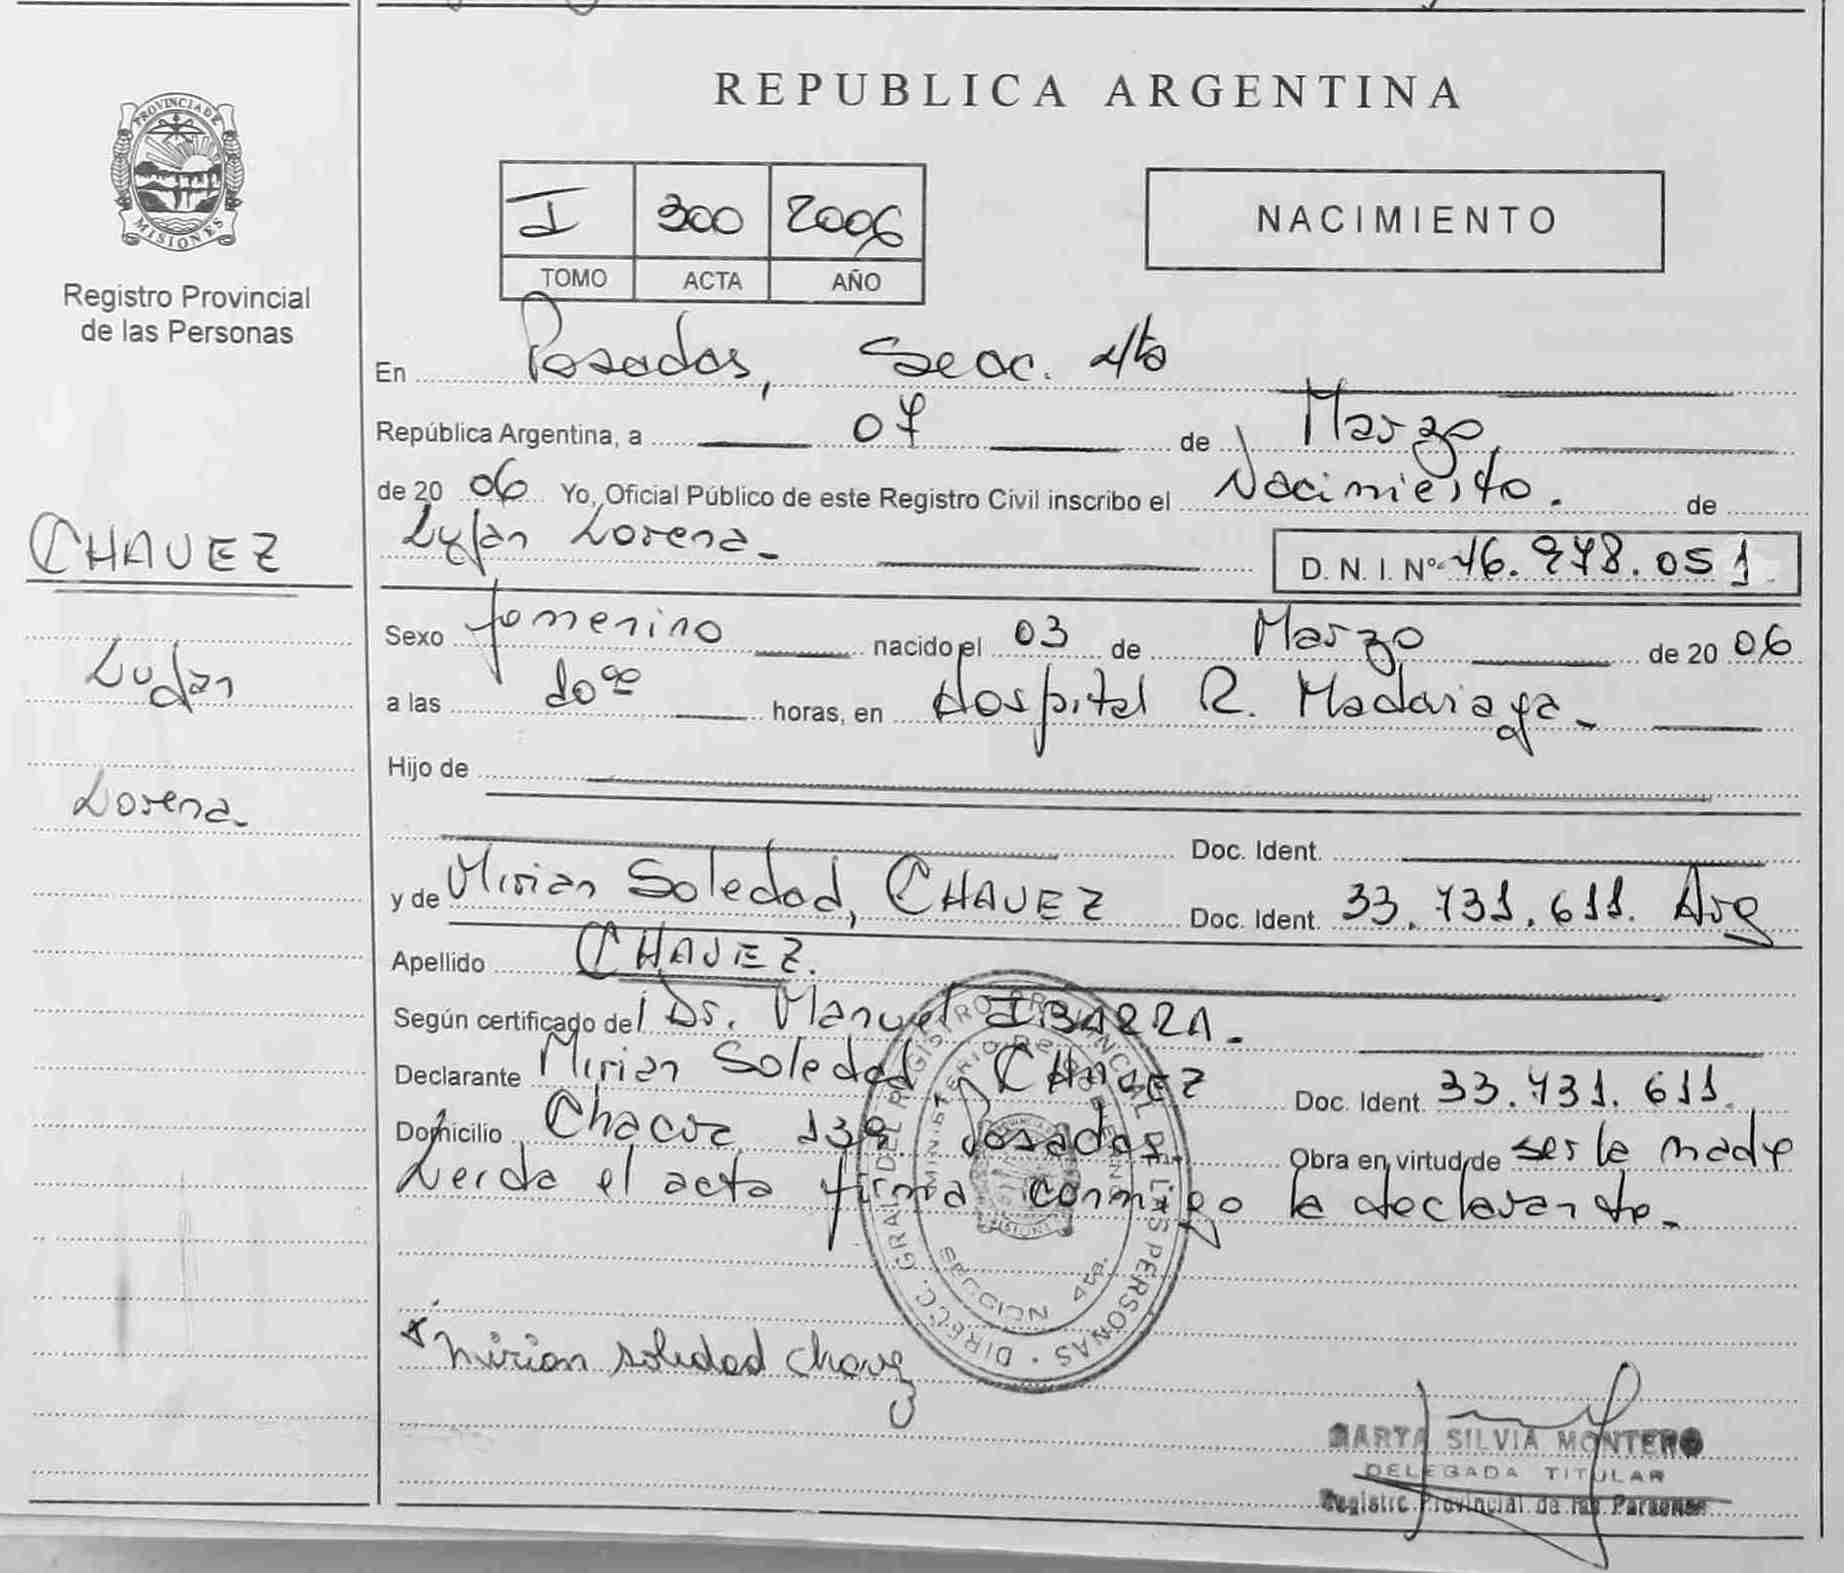 REPUBLICA ARGENTINA
PROVINCIA DE MISIONES
Registro Provincial
de las Personas
I 300 2006
TOMO ACTA AÑO
NACIMIENTO
En Posadas, Secc. 4to
República Argentina, a 07 de Marzo
de 20 06 Yo, Oficial Público de este Registro Civil inscribo el Nacimiento. de
CHAVEZ
Lujan Lorena
D. N. I. Nº 46.978.051
Sexo femenino nacido el 03 de Marzo de 20 06
Lujan
a las 10 horas, en Hospital R. Madariaga
Hijo de
Lorena
Doc. Ident.
y de Mirian Soledad, CHAVEZ Doc. Ident. 33.731.611. Arg
Apellido CHAVEZ.
Según certificado del Dr. Manuel IBARRA
Declarante Mirian Soledad, CHAVEZ Doc. Ident. 33.731.611.
Domicilio Chacra 139 Posadas. Obra en virtud de ser la madre
Leida el acta firma conmigo la declarante
DIRECC. GRAL DEL REGISTRO PROVINCIAL DE LAS PERSONAS
MINISTERIO DE GOBIERNO
MISIONES
4ta.
mirian soledad chavez
MARTA SILVIA MONTERO
DELEGADA TITULAR
Registro Provincial de las Personas